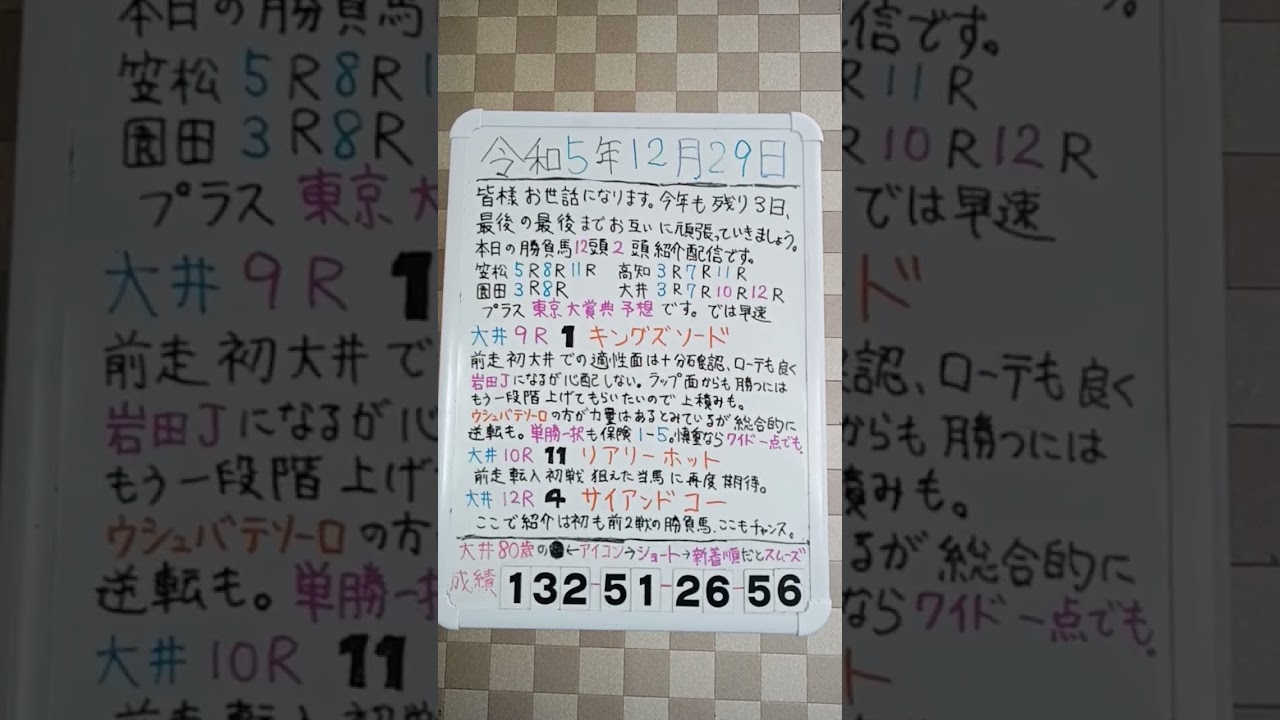 令和5年12月29日
皆様お世話になります。今年も残り3日、
最後の最後までお互いに頑張っていきましょう。
本日の勝負馬12頭2頭紹介配信です。
笠松5R8R11R 高知3R7R11R
園田3R8R 大井3R7R10R12R
プラス東京大賞典予想です。では早速
大井9R 1 キングズソード
前走初大井での適性面は十分確認、ローテも良く
岩田Jになるが心配しない。ラップ面からも勝つには
もう一段階上げてもらいたいので上積みも。
ウシュバテソーロの方が力量はあるとみているが総合的に
逆転も。単勝一択も保険1-5。慎重ならワイド一点でも。
大井10R 11 リアリーホット
前走転入初戦狙えた当馬に再度期待。
大井12R 4 サイアンドコー
ここで紹介は初も前2戦の勝負馬、ここもチャンス。
大井80歳の←アイコン→ショート→新着順だとスムーズ
成績 132-51-26-56